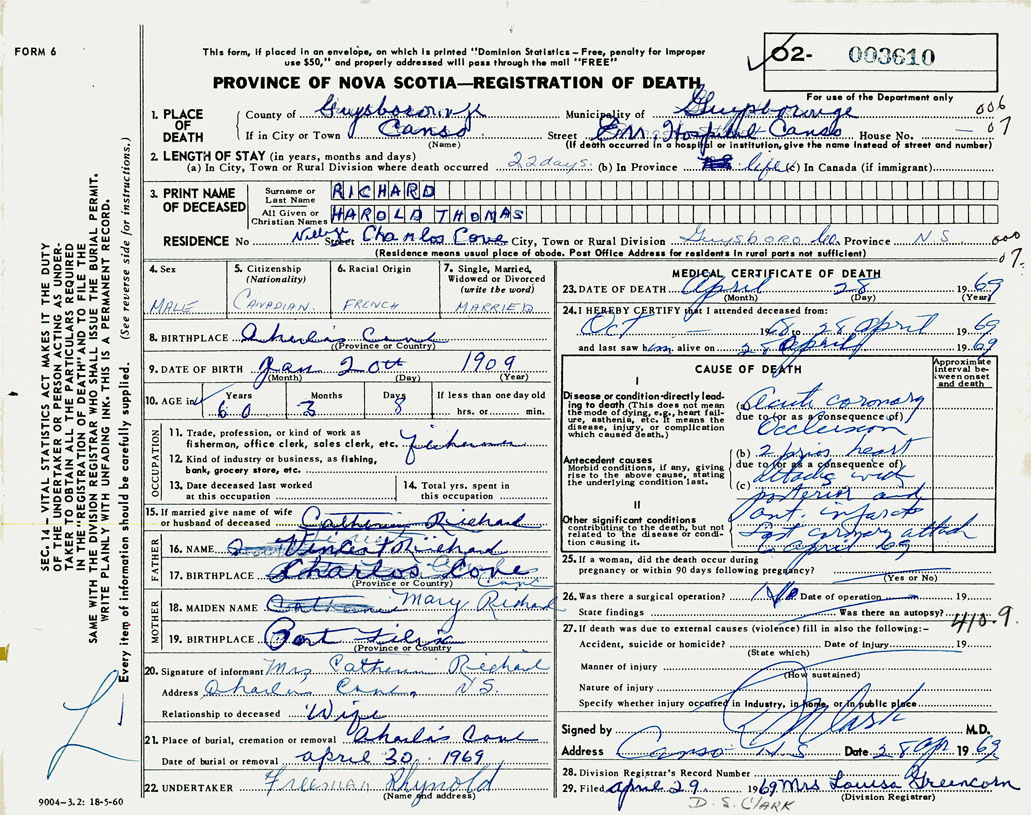 FORM 6
This form, if placed in an envelope, on which is printed "Dominion Statistics – Free, penalty for improper
use $50," and properly addressed will pass through the mail "FREE"
O2- 003610
PROVINCE OF NOVA SCOTIA—REGISTRATION OF DEATH
For use of the Department only
1. PLACE OF DEATH
County of Guysborough Municipality of Guysborough 006
If in City or Town Canso Street Em. Hospital Canso House No. — 07
(Name) (If death occurred in a hospital or institution, give the name instead of street and number)
2. LENGTH OF STAY (in years, months and days)
(a) In City, Town or Rural Division where death occurred 22 days. (b) In Province life (c) In Canada (if immigrant)
3. PRINT NAME OF DECEASED
Surname or Last Name RICHARD
All Given or Christian Names HAROLD THOMAS
RESIDENCE No Street Charlos Cove City, Town or Rural Division Guysboro Co. Province N.S. 000
(Residence means usual place of abode. Post Office Address for residents in rural parts not sufficient) 07.
4. Sex MALE
5. Citizenship (Nationality) CANADIAN.
6. Racial Origin FRENCH
7. Single, Married, Widowed or Divorced (write the word) MARRIED
8. BIRTHPLACE Charlos Cove
(Province or Country)
9. DATE OF BIRTH Jan 20th 1909
(Month) (Day) (Year)
10. AGE in Years 60 Months 3 Days 8 If less than one day old hrs. or min.
OCCUPATION
11. Trade, profession, or kind of work as
fisherman, office clerk, sales clerk, etc. fisherman
12. Kind of industry or business, as fishing,
bank, grocery store, etc.
13. Date deceased last worked
at this occupation
14. Total yrs. spent in
this occupation
15. If married give name of wife
or husband of deceased Catherine Richard
FATHER
16. NAME Vincent Richard
17. BIRTHPLACE Charlos Cove
Cove
(Province or Country)
MOTHER
18. MAIDEN NAME Mary Richard
19. BIRTHPLACE Port Felix
(Province or Country)
20. Signature of informant Mrs. Catherine Richard
Address Charlos Cove, N.S.
Relationship to deceased Wife
21. Place of burial, cremation or removal Charlos Cove
Date of burial or removal april 30 1969
22. UNDERTAKER Freeman Rhynold
(Name and address)
9004–3.2: 18-5-60
MEDICAL CERTIFICATE OF DEATH
23. DATE OF DEATH April 28 1969
(Month) (Day) (Year)
24. I HEREBY CERTIFY that I attended deceased from:
Oct — 1968 to 28 April 1969
and last saw him alive on 28 April 1969
CAUSE OF DEATH
Approximate interval between onset and death
I
Disease or condition directly leading to death (This does not mean the mode of dying, e.g., heart failure, asthenia, etc. It means the disease, injury, or complication which caused death.)
(a) Acute coronary
due to (or as a consequence of)
Occlusion
Antecedent causes
Morbid conditions, if any, giving rise to the above cause, stating the underlying condition last.
(b) 2 prior heart
due to (or as a consequence of)
(c) attacks with
posterior and
II
Other significant conditions
contributing to the death, but not related to the disease or condition causing it.
ant. infarcts
Last coronary attack
April 69
25. If a woman, did the death occur during
pregnancy or within 90 days following pregnancy?
(Yes or No)
26. Was there a surgical operation? No Date of operation
State findings Was there an autopsy?
410.9.
27. If death was due to external causes (violence) fill in also the following:–
Accident, suicide or homicide? Date of injury 19
(State which)
Manner of injury
(How sustained)
Nature of injury
Specify whether injury occurred in industry, in home, or in public place
Signed by Clark M.D.
Address Canso N.S Date 28 Ap. 1969
28. Division Registrar's Record Number
29. Filed april 29 1969 Mrs Louisa Greencorn
(Division Registrar)
D.S. CLARK
SEC. 14 – VITAL STATISTICS ACT MAKES IT THE DUTY
OF THE UNDERTAKER OR PERSON ACTING AS UNDER-
TAKER TO OBTAIN ALL THE PARTICULARS REQUIRED
IN THE "REGISTRATION OF DEATH" AND TO FILE THE
SAME WITH THE DIVISION REGISTRAR WHO SHALL ISSUE THE BURIAL PERMIT.
WRITE PLAINLY WITH UNFADING INK. THIS IS A PERMANENT RECORD.
Every item of information should be carefully supplied. (See reverse side for instructions.)